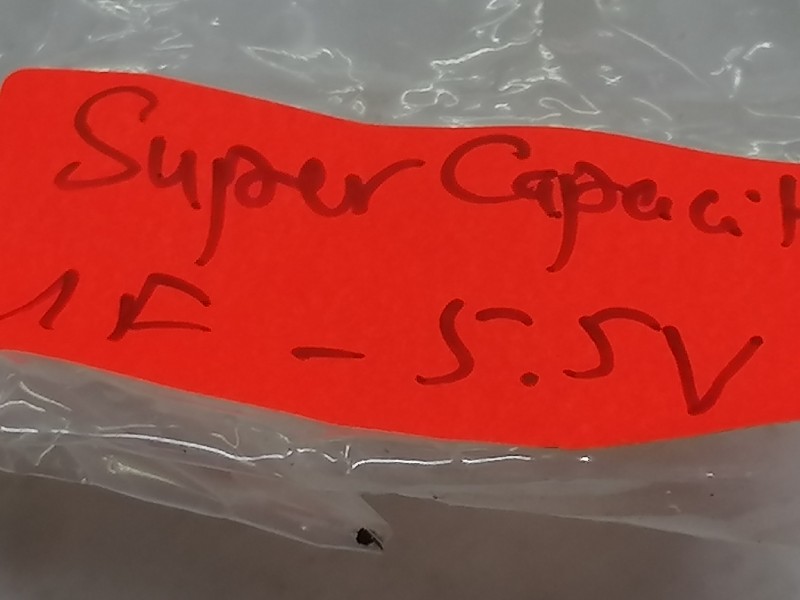 Super Capacit
1F - 5.5V